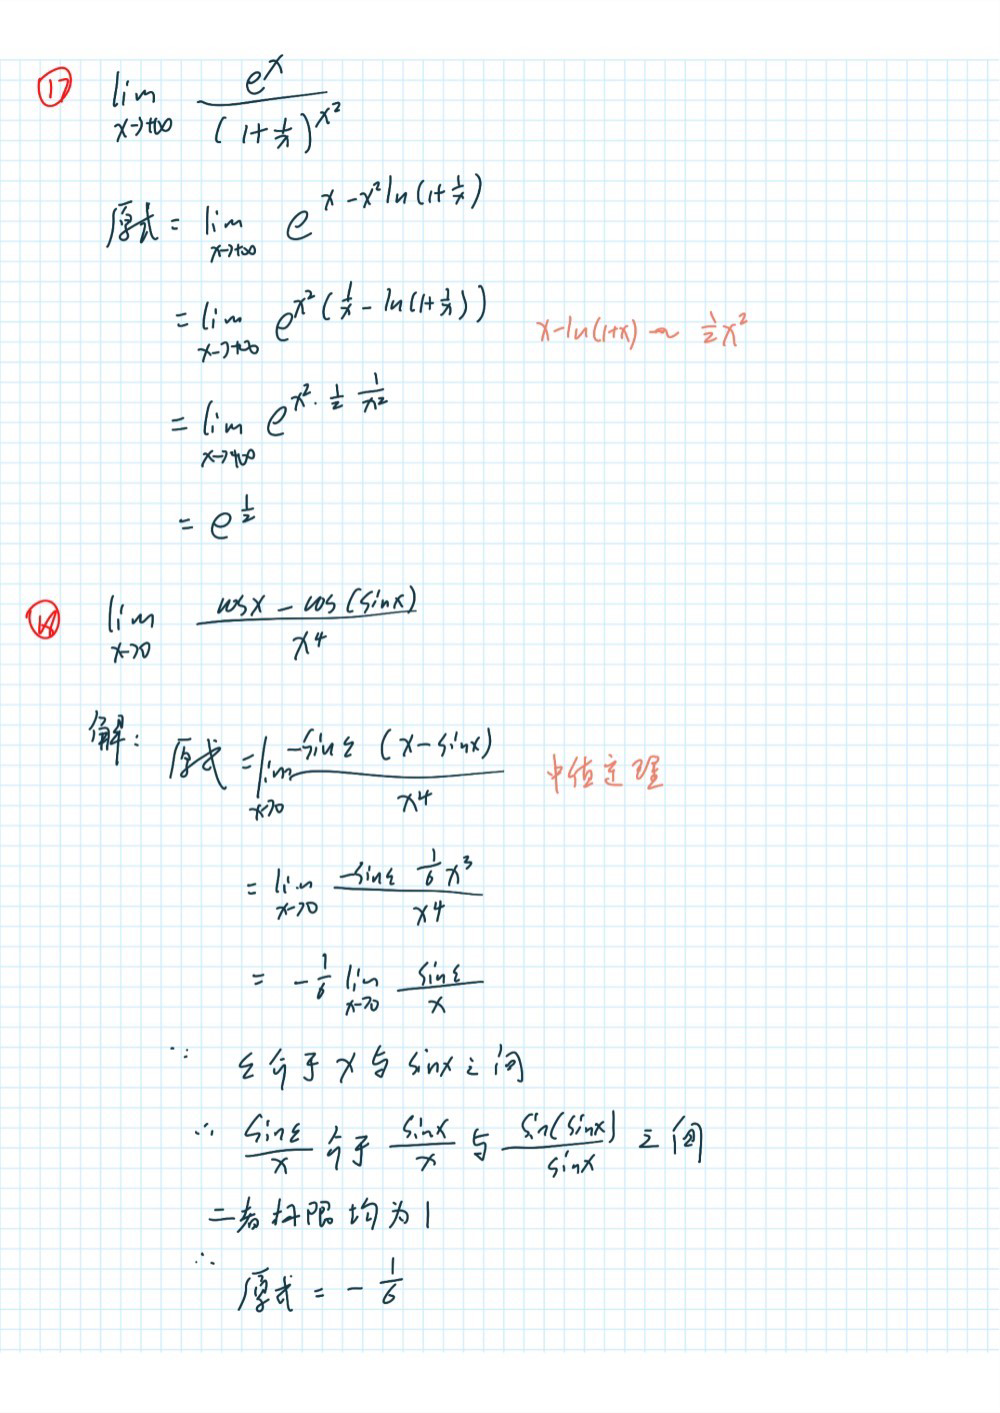 ⑰ lim_{x→+∞} e^x / (1+1/x)^{x²}
原式 = lim_{x→+∞} e^{x-x²ln(1+1/x)}
= lim_{x→+∞} e^{x²(1/x - ln(1+1/x))} x-ln(1+x) ~ 1/2 x²
= lim_{x→+∞} e^{x²·1/2 1/x²}
= e^{1/2}
⑱ lim_{x→0} (cosx - cos(sinx)) / x⁴
解: 原式 = lim_{x→0} -sinξ (x-sinx) / x⁴ 中值定理
= lim_{x→0} -sinξ 1/6 x³ / x⁴
= -1/6 lim_{x→0} sinξ / x
∵ ξ介于x与sinx之间
∴ sinξ/x 介于 sinx/x 与 sin(sinx)/sinx 之间
二者极限均为1
∴ 原式 = -1/6